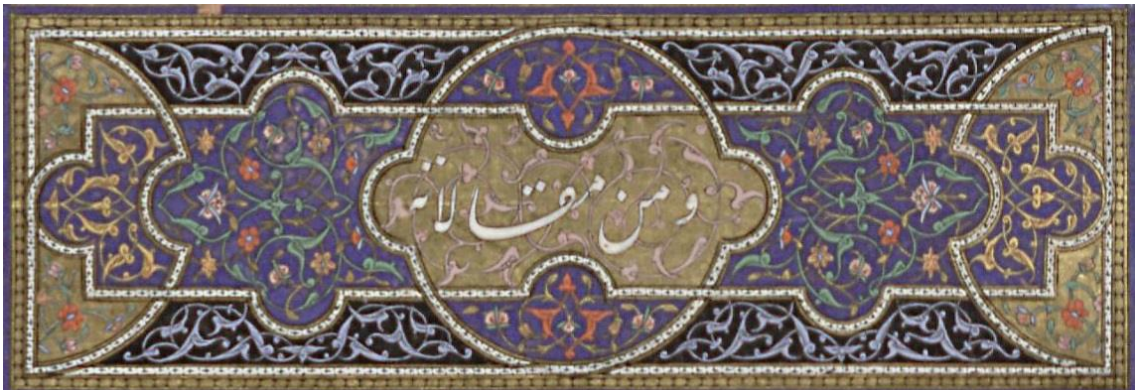 ومن مقالاته